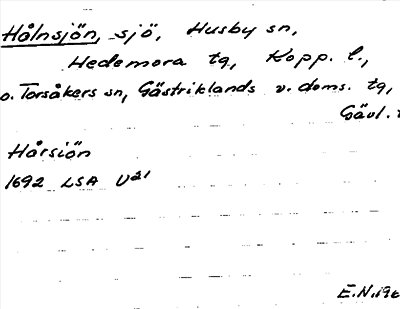 Hålnsjön, sjö, Husby sn,
Hedemora tg, Kopp. l.,
o. Torsåkers sn, Gästriklands v. doms. tg,
Gävl.
Hårsiön
1692 LSA U21
E.N. 196